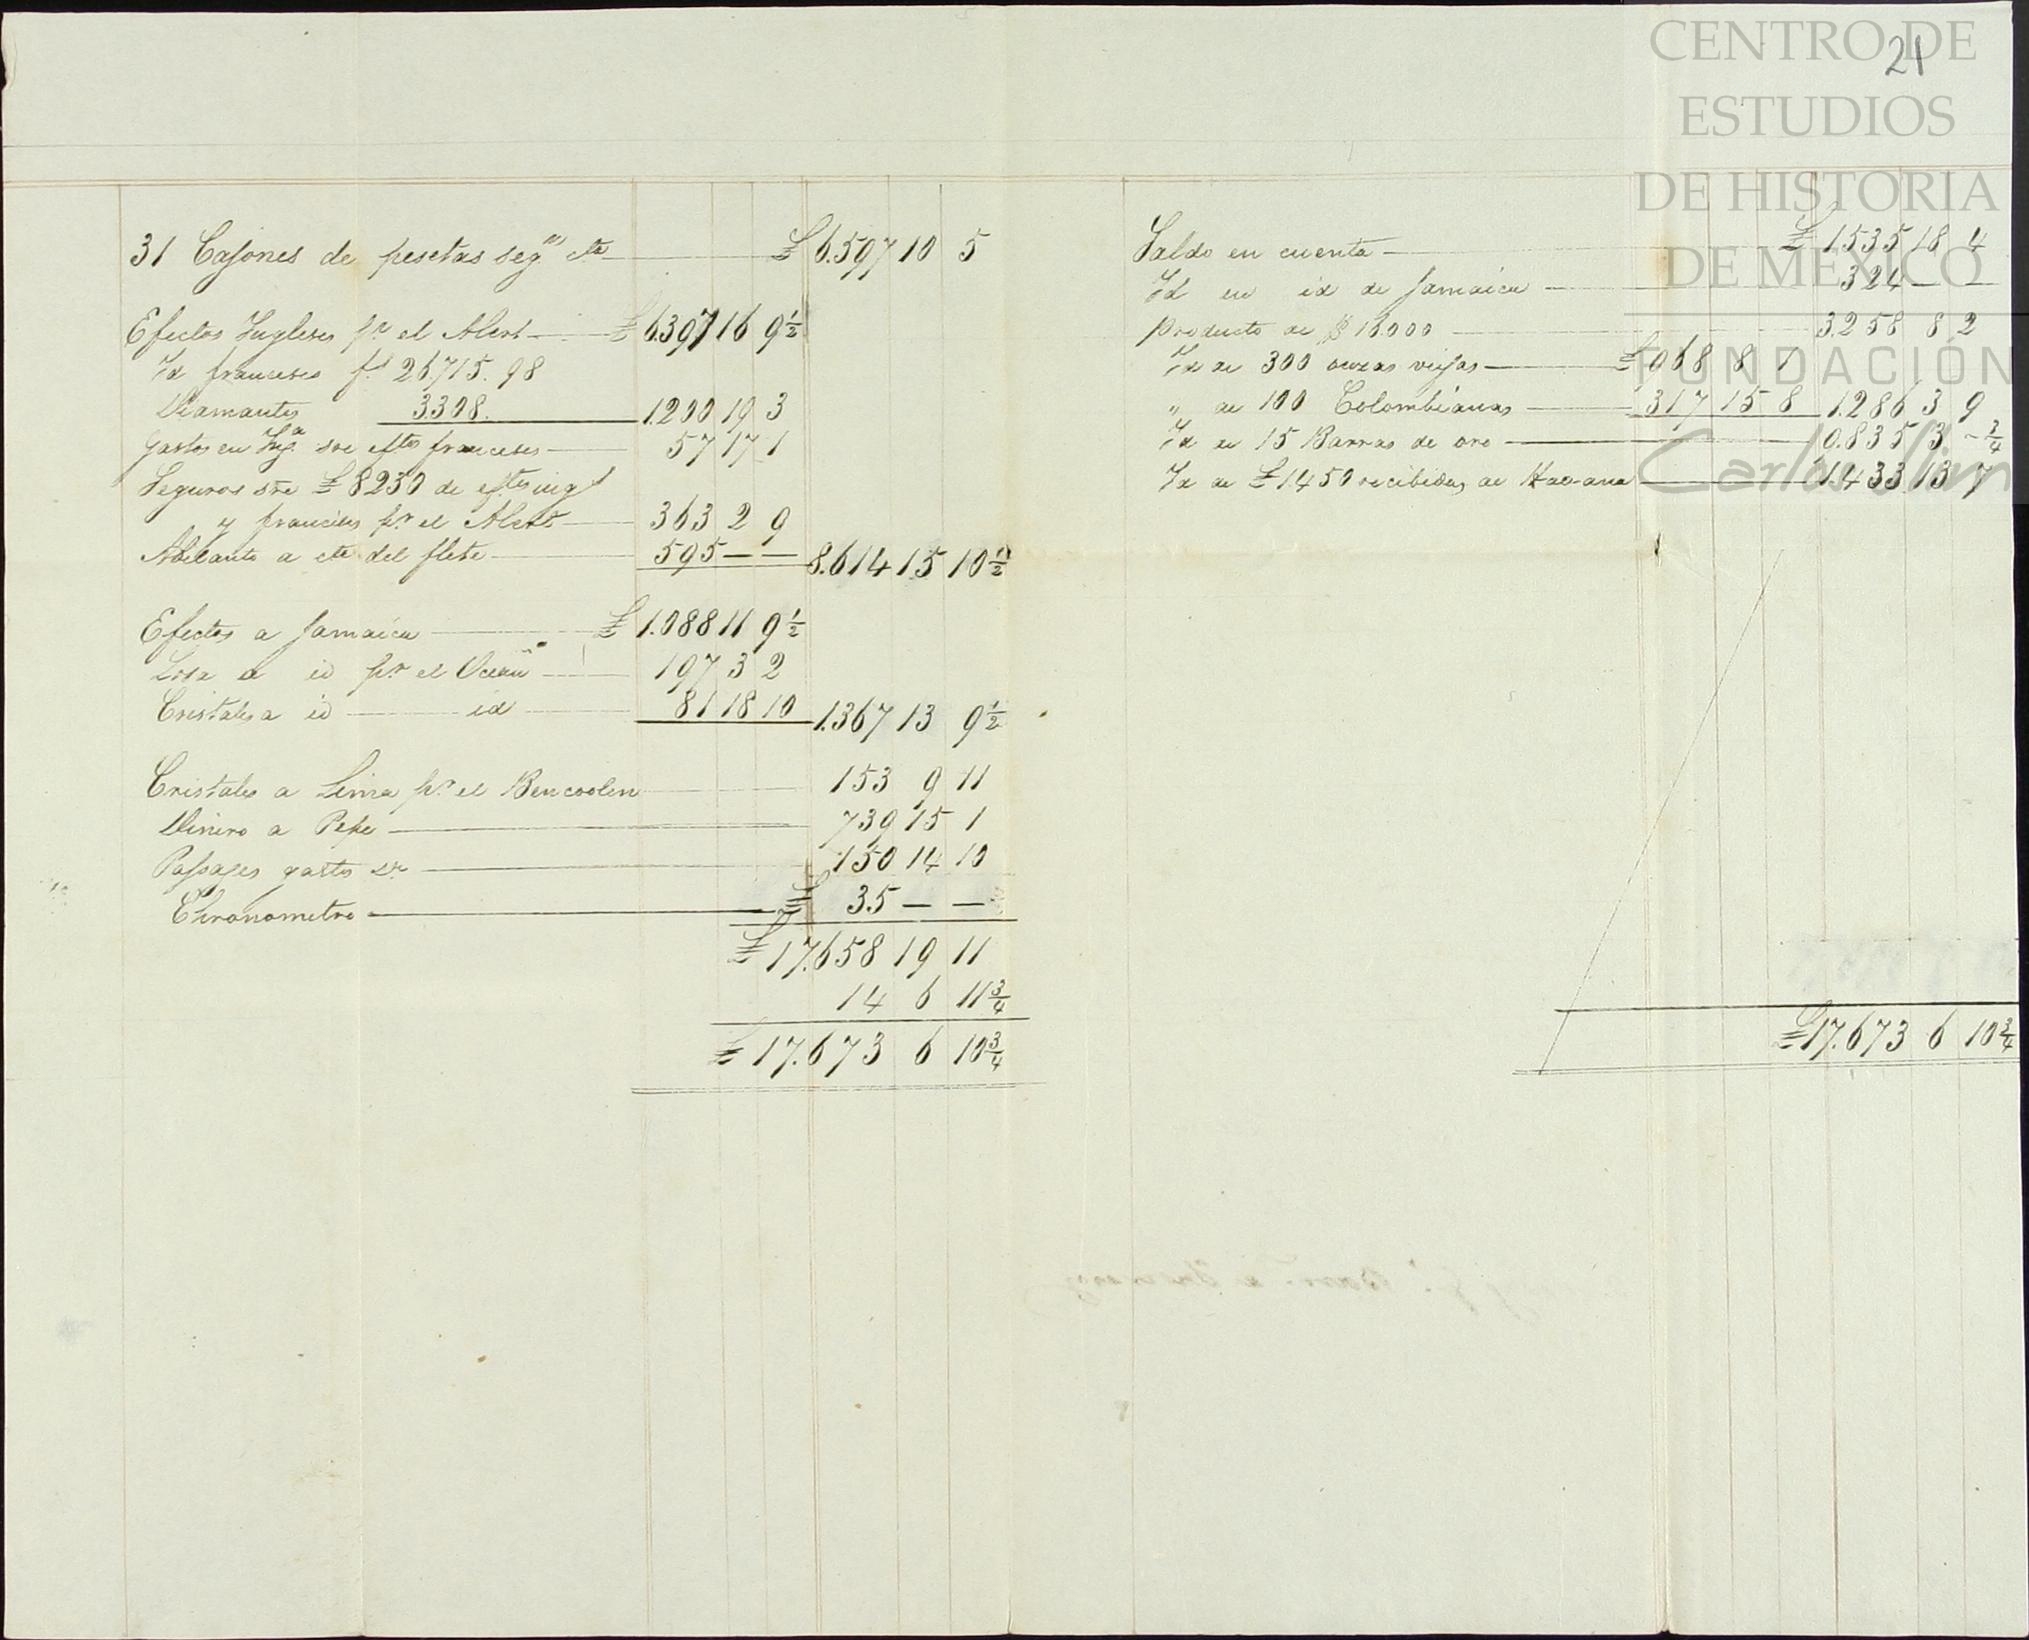 21
CENTRO DE
ESTUDIOS
DE HISTORIA
DE MEXICO
FUNDACIÓN
Carlos Slim
31 Cajones de pesetas seg.n cta £ 6.597 10 5
Efectos Yngleses pr el Alert £ 6397 16 9½
Yd franceses f.s 26.715.98
Diamantes 3308. 1.200 19 3
Gastos en Yng.a sre eftos franceses 57 17 1
Seguros sre £ 8230 de eftos ings
y franceses pr el Alert 363 2 9
Adelanto a cta del flete 595 — — 8.614 15 10½
Efectos a Jamaica £ 1.088 11 9½
Losa a id pr el Ocean 197 3 2
Cristales a id id 81 18 10 1.367 13 9½
Cristales a Lima pr el Bencoolen 153 9 11
Dinero a Pepe 739 15 1
Passages gastos 150 14 10
Chronometro £ 35 — —
£ 17.658 19 11
14 6 11¾
£ 17.673 6 10¾
Saldo en cuenta £ 1535 18 4
Yd en id de Jamaica 324 — —
Producto de $ 16.000 3.258 8 2
Yd de 300 onzas viejas £ 968 8 1
" de 100 Colombianas 317 15 8 1.286 3 9
Yd de 15 Barras de oro 9.835 3 - ¾
Yd de £ 1450 recibidas de Havana 1.433 13 7
£ 17.673 6 10¾